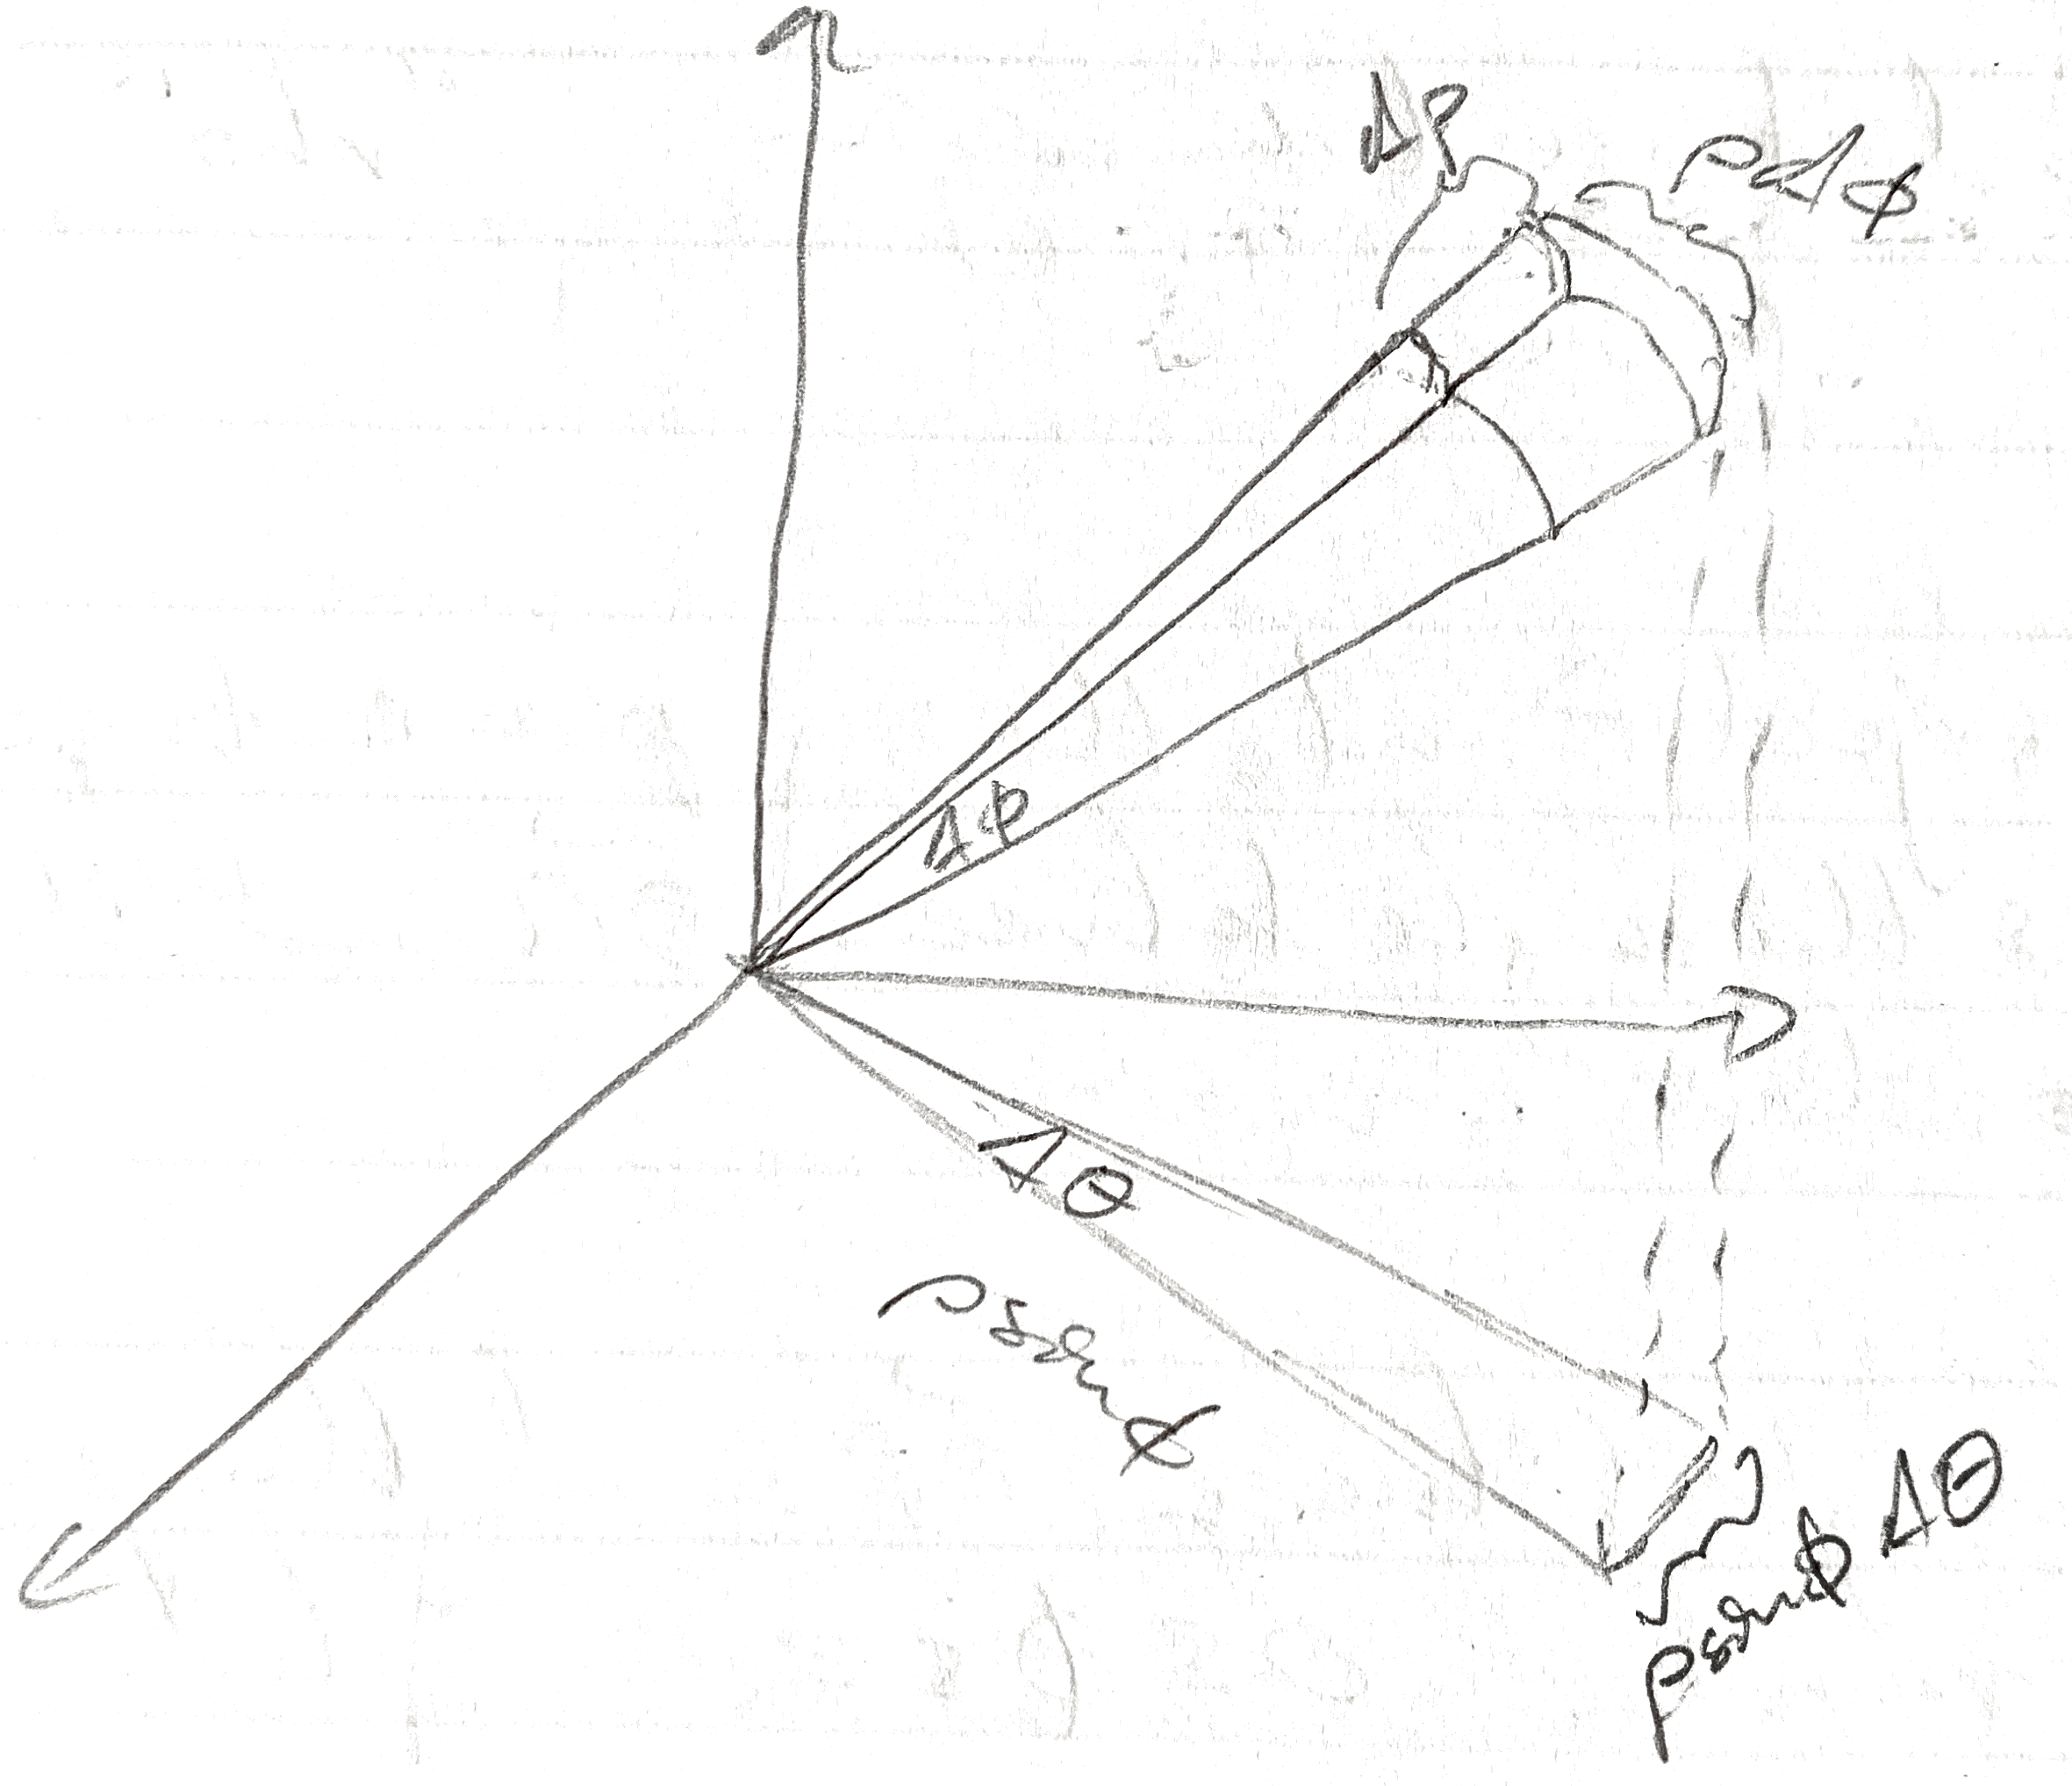 Δρ
ρΔφ
Δφ
Δθ
ρsinφ
ρsinφ Δθ